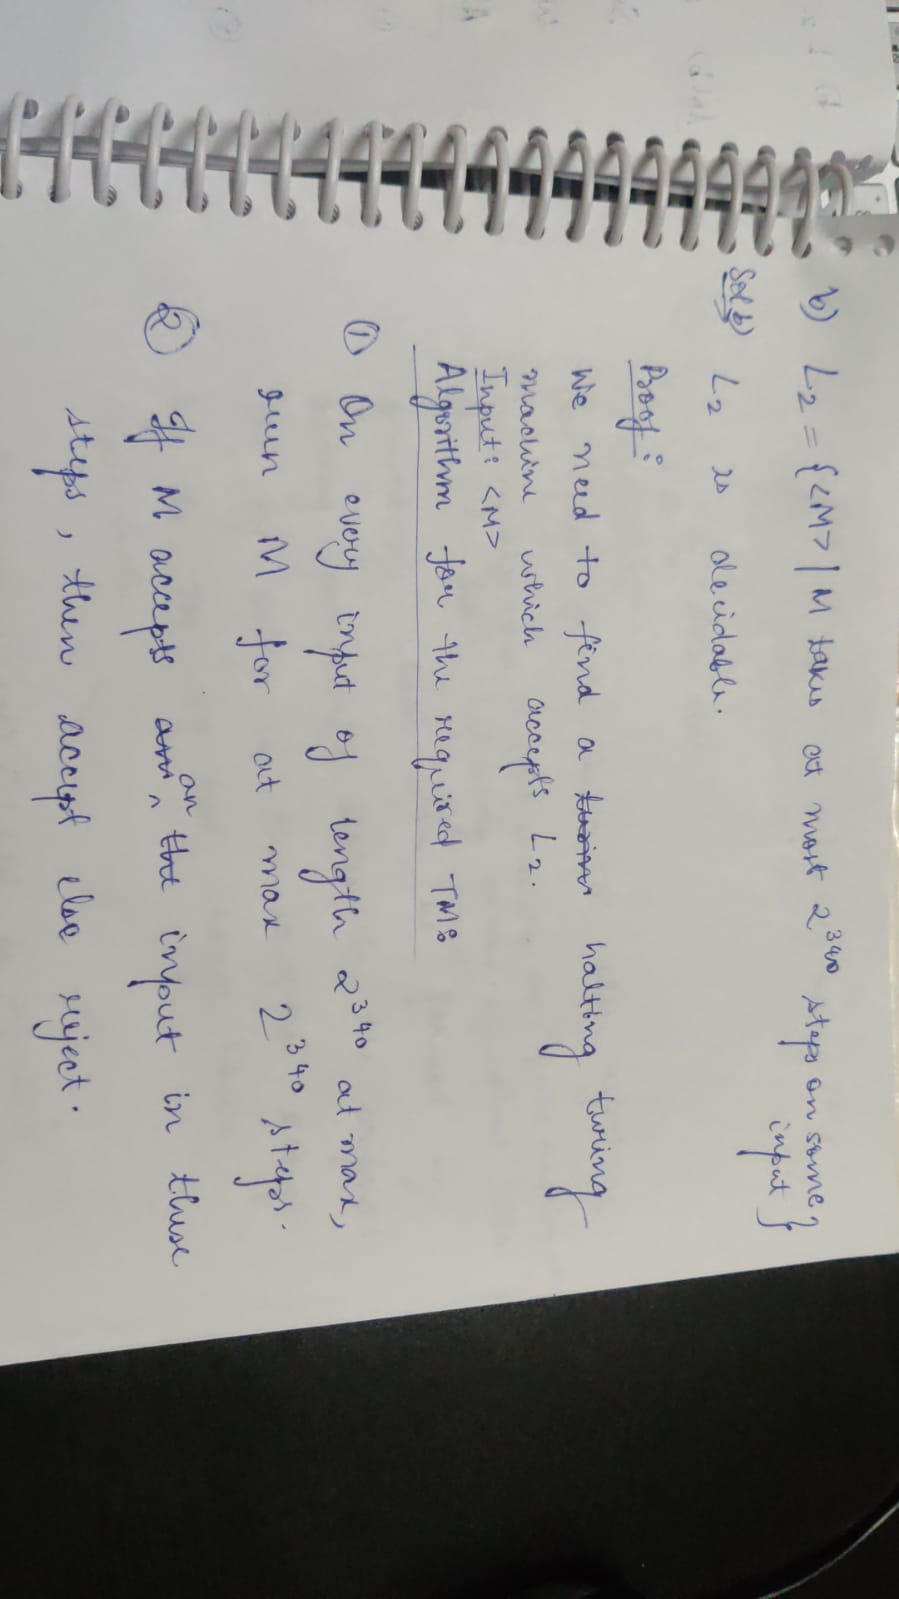 b) L₂ = {<M> | M takes at most 2³⁴⁰ steps on some
input}
Sol b) L₂ is decidable.
Proof :
We need to find a halting turing
machine which accepts L₂.
Input: <M>
Algorithm for the required TM:
① On every input of length 2³⁴⁰ at max,
run M for at max 2³⁴⁰ steps.
② If M accepts an input in these
steps, then accept else reject.